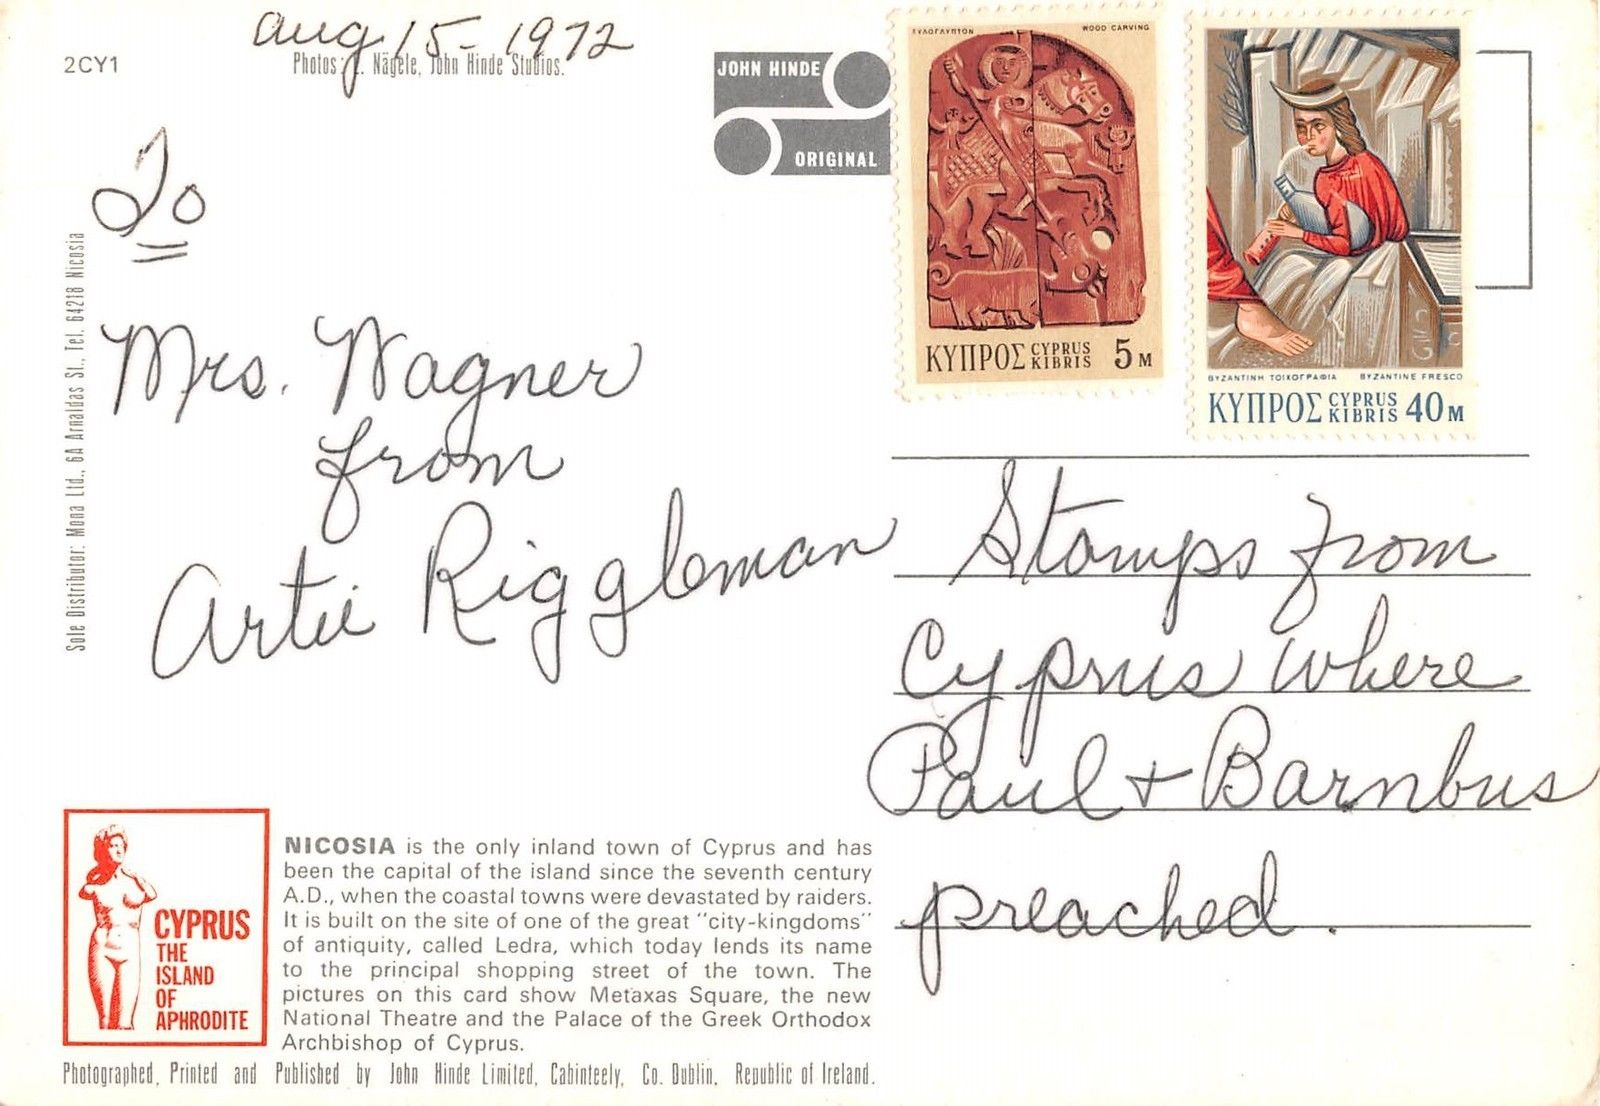 Aug 15 - 1972
2CY1
Photos: Nägele, John Hinde Studios.
JOHN HINDE
ORIGINAL
ΞΥΛΟΓΛΥΠΤΟΝ WOOD CARVING
ΚΥΠΡΟΣ CYPRUS KIBRIS 5 M
ΒΥΖΑΝΤΙΝΗ ΤΟΙΧΟΓΡΑΦΙΑ BYZANTINE FRESCO
ΚΥΠΡΟΣ CYPRUS KIBRIS 40 M
Sole Distributor: Mona Ltd., 6A Arnaldas St., Tel. 64218 Nicosia
To
Mrs. Wagner
from
Artie Riggleman
Stamps from
Cyprus where
Paul + Barnbus
preached.
CYPRUS
THE
ISLAND
OF
APHRODITE
NICOSIA is the only inland town of Cyprus and has
been the capital of the island since the seventh century
A.D., when the coastal towns were devastated by raiders.
It is built on the site of one of the great "city-kingdoms"
of antiquity, called Ledra, which today lends its name
to the principal shopping street of the town. The
pictures on this card show Metaxas Square, the new
National Theatre and the Palace of the Greek Orthodox
Archbishop of Cyprus.
Photographed, Printed and Published by John Hinde Limited, Cabinteely, Co. Dublin, Republic of Ireland.